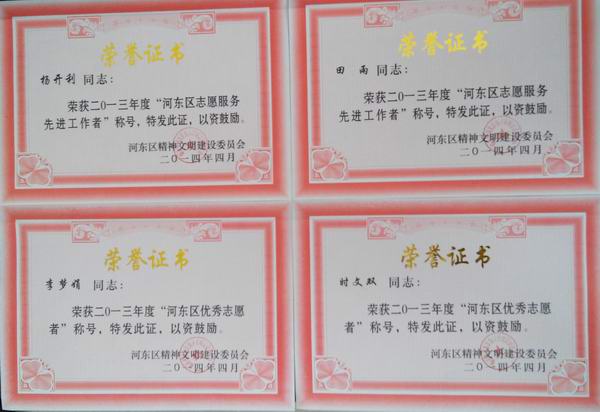 荣誉证书
杨开利 同志：
荣获二0一三年度“河东区志愿服务
先进工作者”称号，特发此证，以资鼓励。
河东区精神文明建设委员会
二0一四年四月
荣誉证书
田雨 同志：
荣获二0一三年度“河东区志愿服务
先进工作者”称号，特发此证，以资鼓励。
河东区精神文明建设委员会
二0一四年四月
荣誉证书
李梦娟 同志：
荣获二0一三年度“河东区优秀志愿
者”称号，特发此证，以资鼓励。
河东区精神文明建设委员会
二0一四年四月
荣誉证书
时文双 同志：
荣获二0一三年度“河东区优秀志愿
者”称号，特发此证，以资鼓励。
河东区精神文明建设委员会
二0一四年四月